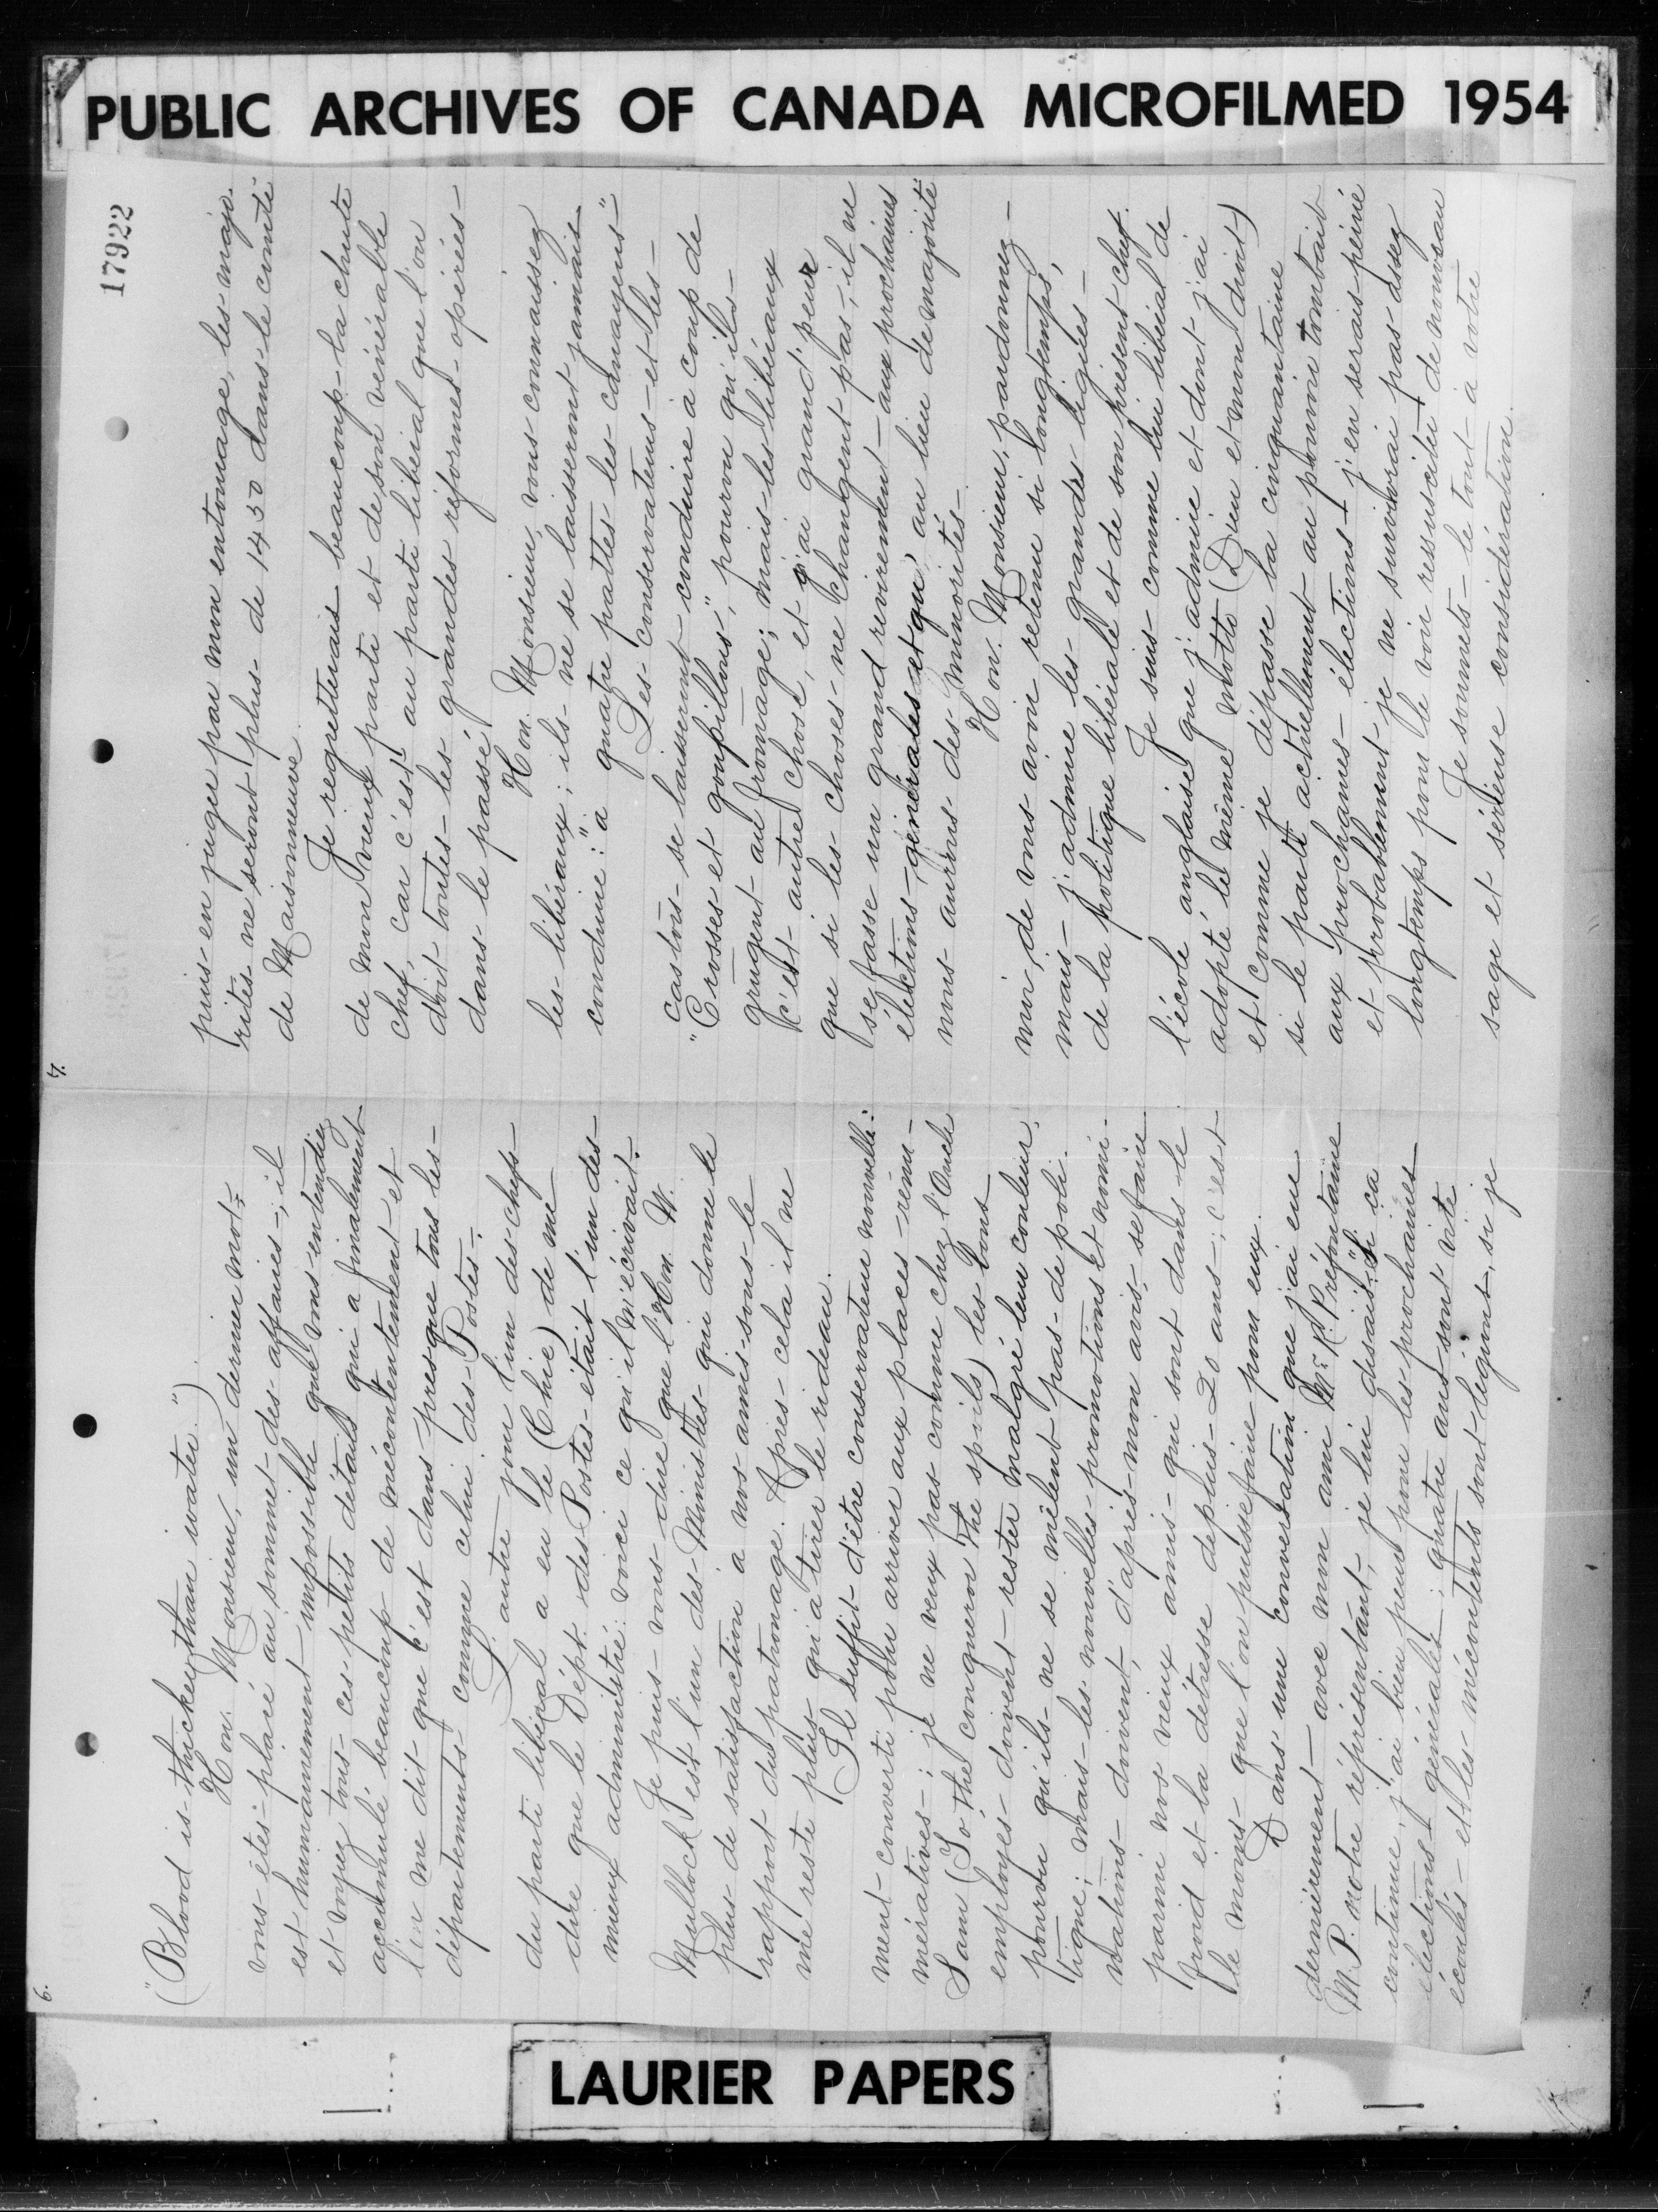 PUBLIC ARCHIVES OF CANADA MICROFILMED 1954
17922
6.
("Blood is thicker than water")
Hon. Monsieur, un dernier mot:
vous êtes placé au sommet des affaires, il
est humainement impossible que vous entendiez
et voyez tous ces petits détails qui a finalement
accumulé beaucoup de mécontentement et
l'on me dit que c'est dans presque tous les
départements comme celui des Postes.
L'autre jour l'un des chefs
du parti libéral a eu le (Chic) de me
dire que le Dépt. des Postes était l'un des
mieux administré: voici ce qu'il m'écrivait.
Je puis vous dire que l'Hon. W.
Mullock est l'un des Ministres qui donne le
plus de satisfaction à nos amis sous le
rapport du patronage. Après cela il ne
me reste plus qu'à tirer le rideau.
Il suffit d'être conservateur nouvelle-
ment converti pour arriver aux places rému-
nératives; je ne veux pas comme chez l'Oncle
Sam (To the conqueror the spoils) les bons
employés doivent rester malgré leur couleur,
pourvu qu'ils ne se mêlent pas de poli-
tique; mais les nouvelles promotions et nomi-
nations doivent, d'après mon avis, se faire
parmi nos vieux amis qui sont dans le
froid et la détresse depuis 20 ans; c'est
le moins que l'on puisse faire pour eux.
Dans une conversation que j'ai eue
dernièrement avec mon ami Mr. R. Préfontaine
M.P. notre représentant, je lui disais: "Si ça
continue, j'ai bien peur pour les prochaines
élections générales; quatre ans sont vite
écoulés et les mécontents sont légions, si je
7.
puis en juger par mon entourage, les majo-
rités ne seront plus de 1450 dans le comté
de Maisonneuve.
Je regretterais beaucoup la chute
de mon vieux parti et de son vénérable
chef, car c'est au parti libéral que l'on
doit toutes les grandes réformes opérées
dans le passé.
Hon. Monsieur, vous connaissez
les libéraux; ils ne se laisseront jamais
conduire: "à quatre pattes les comayens"
Les conservateurs et les
castors se laisseront conduire à coup de
"Crosses et goupillons", pourvu qu'ils
grugent au fromage; mais les libéraux
c'est autre chose, et j'ai grand'peur
que si les choses ne changent pas, il ne
se fasse un grand revirement aux prochaines
élections générales et qu'au lieu de majorité
nous aurons des minorités.
Hon. Monsieur, pardonnez-
moi, de vous avoir retenu si longtemps,
mais j'admire les grandes lignes
de la politique libérale et de son présent chef.
Je suis comme lui libéral de
l'école anglaise que j'admire et dont j'ai
adopté le même motto (Dieu et mon droit)
et comme je dépasse la cinquantaine
si le parti actuellement au pouvoir tombait
aux prochaines élections j'en serais peiné
et probablement je ne survivrai pas assez
longtemps pour le voir ressusciter de nouveau
Je soumets le tout à votre
sage et sérieuse considération.
LAURIER PAPERS